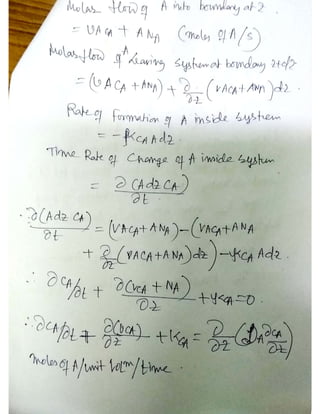 Molar flow of A into boundary at z
= UACA + ANA (moles of A/s)
Molar flow of A leaving system at boundary z+dz
= (UACA + ANA) + ∂/∂z (VACA+ANA) dz.
Rate of Formation of A inside system
= -KCA Adz.
Time Rate of Change of A inside system
= ∂(Adz CA)/∂t
∴ ∂(Adz CA)/∂t = (VACA+ANA)-(VACA+ANA
+ ∂/∂z (VACA+ANA) dz) - KCA Adz.
∴ ∂CA/∂t + ∂(VCA + NA)/∂z + KCA=0.
∴ ∂CA/∂t + ∂(UCA)/∂z + KCA = ∂/∂z (DA ∂CA/∂z)
moles of A/unit volm/time.